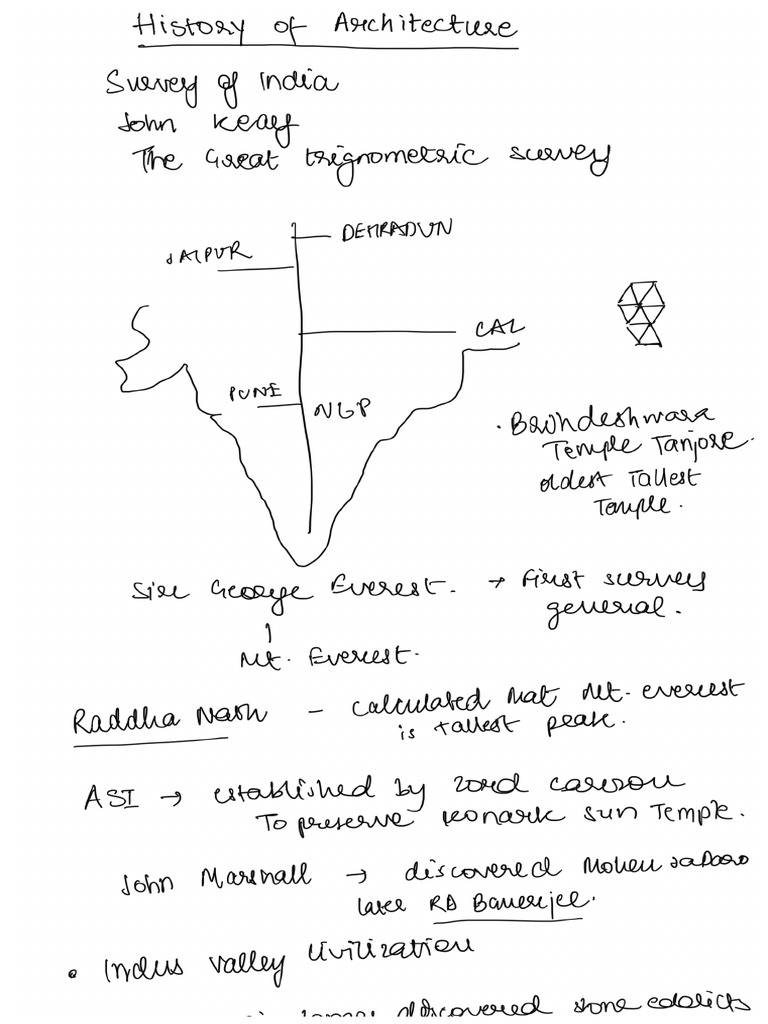 History of Architecture
Survey of India
John Keay
The Great trignometric survey
DEHRADUN
JAIPUR
CAL
PUNE
NGP
• Brihdeshwara
Temple Tanjore.
oldest Tallest
Temple.
Sir George Everest. → First survey
general.
Mt. Everest.
Raddha Nath – calculated that Mt. everest
is tallest peak.
ASI → established by Lord Curzon
To preserve Konark Sun Temple.
John Marshall → discovered Mohenjadaro
later RD Banerjee.
• Indus Valley Civilization
discovered stone edicts